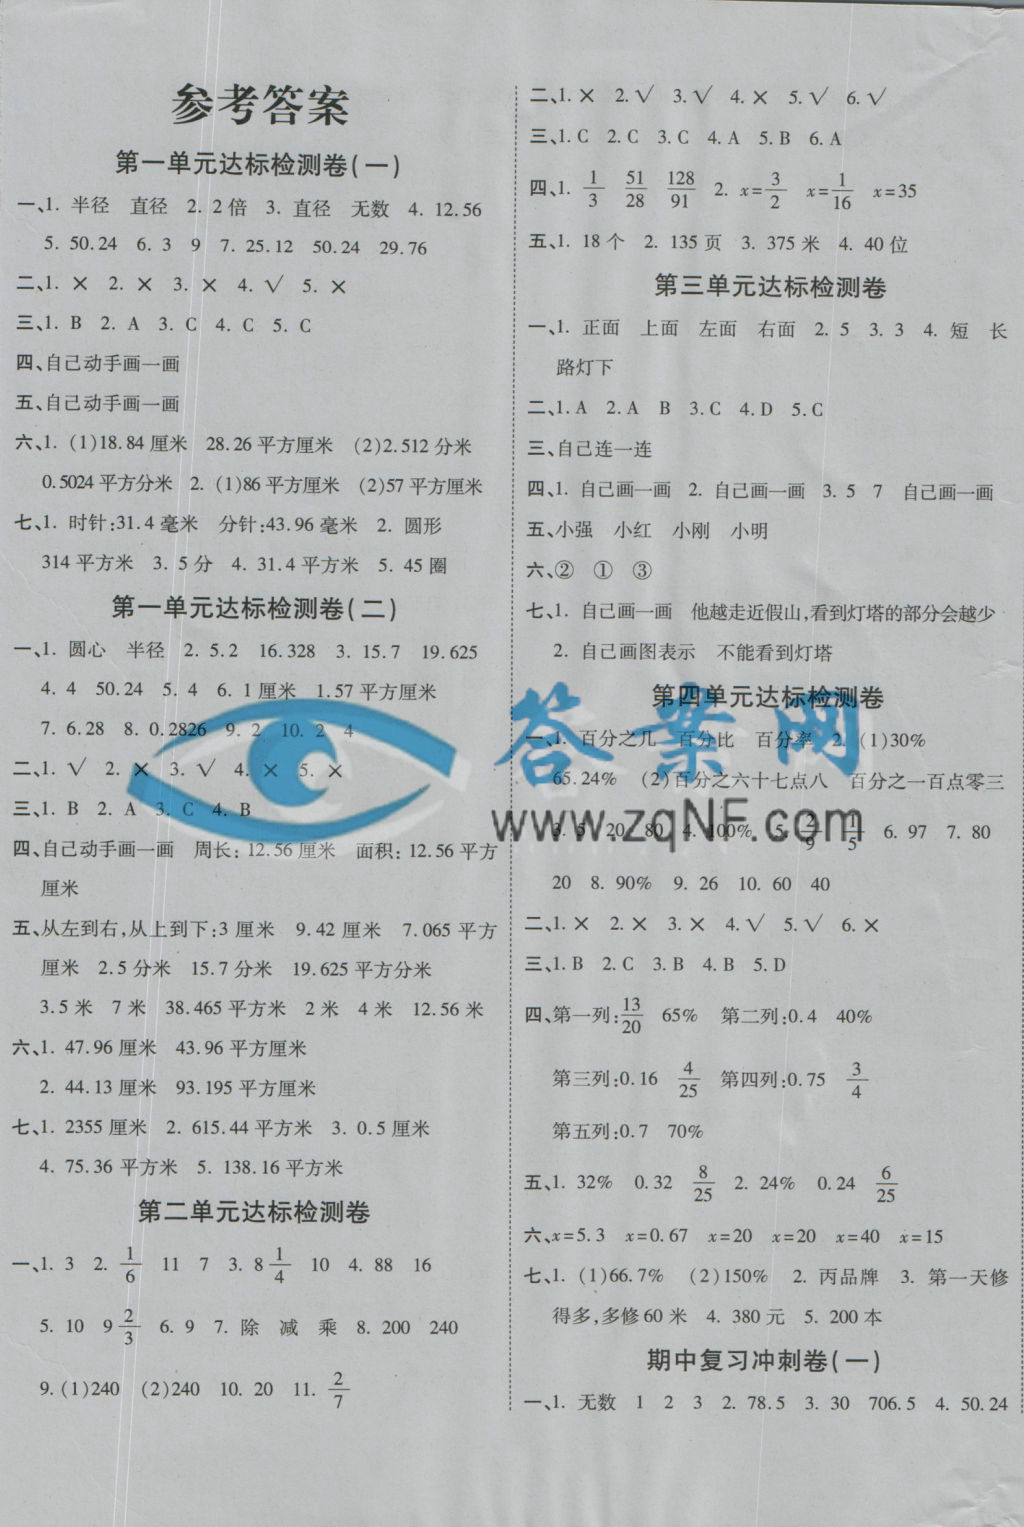 参考答案
第一单元达标检测卷(一)
一、1. 半径 直径 2. 2倍 3. 直径 无数 4. 12.56
5. 50.24 6. 3 9 7. 25.12 50.24 29.76
二、1. × 2. × 3. × 4. √ 5. ×
三、1. B 2. A 3. C 4. C 5. C
四、自己动手画一画
五、自己动手画一画
六、1. (1)18.84厘米 28.26平方厘米 (2)2.512分米
0.5024平方分米 2. (1)86平方厘米 (2)57平方厘米
七、1. 时针:31.4毫米 分针:43.96毫米 2. 圆形
314平方米 3. 5分 4. 31.4平方米 5. 45圈
第一单元达标检测卷(二)
一、1. 圆心 半径 2. 5.2 16.328 3. 15.7 19.625
4. 4 50.24 5. 4 6. 1厘米 1.57平方厘米
7. 6.28 8. 0.2826 9. 2 10. 2 4
二、1. √ 2. × 3. √ 4. × 5. ×
三、1. B 2. A 3. C 4. B
四、自己动手画一画 周长: 12.56厘米 面积: 12.56平方
厘米
五、从左到右,从上到下:3厘米 9.42厘米 7.065平方
厘米 2.5分米 15.7分米 19.625平方分米
3.5米 7米 38.465平方米 2米 4米 12.56米
六、1. 47.96厘米 43.96平方厘米
2. 44.13厘米 93.195平方厘米
七、1. 2355厘米 2. 615.44平方厘米 3. 0.5厘米
4. 75.36平方米 5. 138.16平方米
第二单元达标检测卷
一、1. 3 2. 1/6 11 7 3. 8 1/4 10 4. 88 16
5. 10 9 2/3 6. 9 7. 除 减 乘 8. 200 240
9. (1)240 (2)240 10. 20 11. 2/7
二、1. × 2. √ 3. √ 4. × 5. √ 6. √
三、1. C 2. C 3. C 4. A 5. B 6. A
四、1. 1/3 51/28 128/91 2. x=3/2 x=1/16 x=35
五、1. 18个 2. 135页 3. 375米 4. 40位
第三单元达标检测卷
一、1. 正面 上面 左面 右面 2. 5 3. 3 4. 短 长
路灯下
二、1. A 2. A B 3. C 4. D 5. C
三、自己连一连
四、1. 自己画一画 2. 自己画一画 3. 5 7 自己画一画
五、小强 小红 小刚 小明
六、② ① ③
七、1. 自己画一画 他越走近假山,看到灯塔的部分会越少
2. 自己画图表示 不能看到灯塔
第四单元达标检测卷
答案网
一、1. 百分之几 百分比 百分率 2. (1)30%
65.24% (2)百分之六十七点八 百分之一百点零三
www.zqNF.com
3. 5 20 80 4. 100% 5. 2/9 1/5 6. 97 7. 80
20 8. 90% 9. 26 10. 60 40
二、1. × 2. × 3. × 4. √ 5. √ 6. ×
三、1. B 2. C 3. B 4. B 5. D
四、第一列:13/20 65% 第二列:0.4 40%
第三列:0.16 4/25 第四列:0.75 3/4
第五列:0.7 70%
五、1. 32% 0.32 8/25 2. 24% 0.24 6/25
六、x=5.3 x=0.67 x=20 x=40 x=15
七、1. (1)66.7% (2)150% 2. 丙品牌 3. 第一天修
得多,多修60米 4. 380元 5. 200本
期中复习冲刺卷(一)
一、1. 无数 1 2 3 2. 78.5 3. 30 706.5 4. 50.24